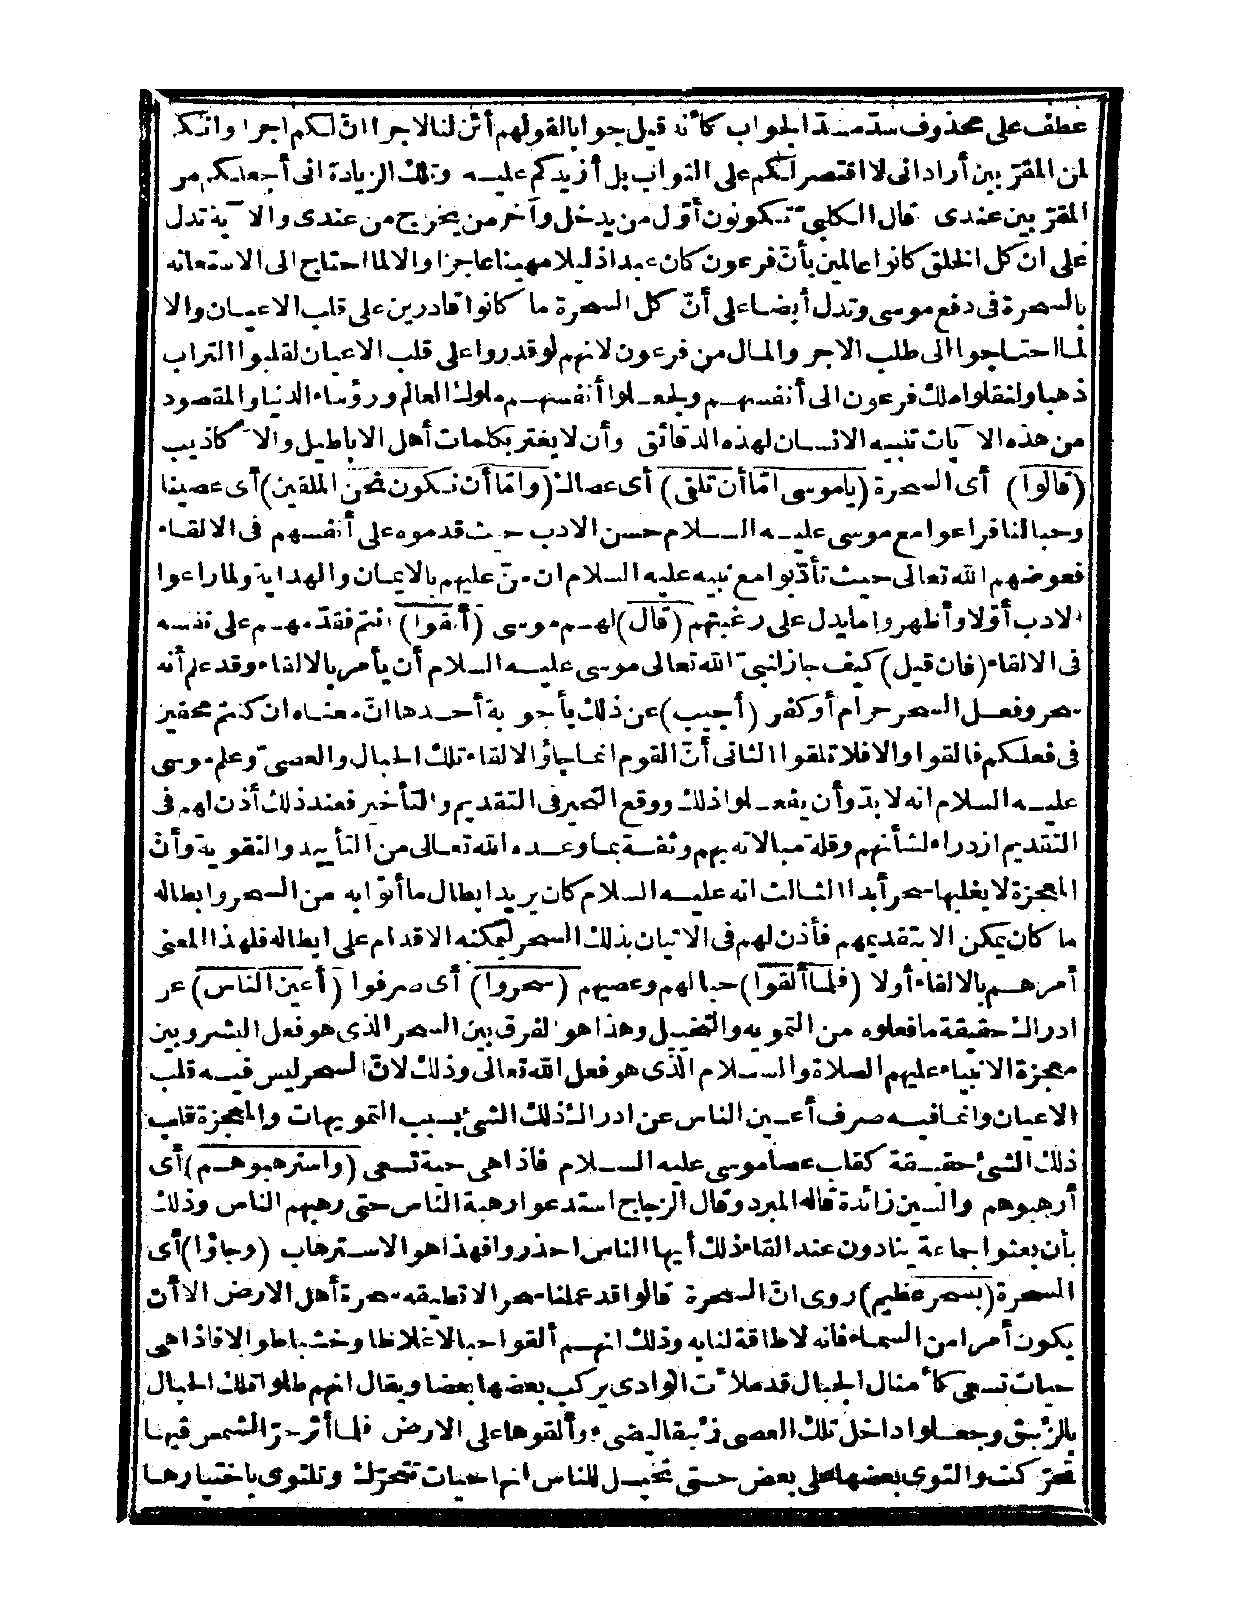 عطف على محذوف سدّ مسدّ الجواب كأنه قيل جوابا لقولهم أئن لنا لاجرا انّ لكم اجرا وانكم
لمن المقرّبين أراد انى لا اقتصر لكم على الثواب بل أزيدكم عليه وتلك الزيادة انى أجعلكم من
المقرّبين عندى قال الكلبى تكونون أوّل من يدخل وآخر من يخرج من عندى والآية تدل
على ان كل الخلق كانوا عالمين بأن فرعون كان عبدا ذليلا مهينا عاجزا والا لما احتاج الى الاستعانة
بالسحرة فى دفع موسى وتدل أيضا على أنّ كل السحرة ما كانوا قادرين على قلب الاعيان والا
لما احتاجوا الى طلب الاجر والمال من فرعون لانهم لو قدروا على قلب الاعيان لقلبوا التراب
ذهبا ولنقلوا ملك فرعون الى أنفسهم ولجعلوا أنفسهم ملوك العالم ورؤساء الدنيا والمقصود
من هذه الآيات تنبيه الانسان لهذه الدقائق وأن لا يغتر بكلمات أهل الاباطيل والاكاذيب
(قالوا) أى السحرة (ياموسى امّا أن تلقى) أى عصاك (وامّا أن نكون نحن الملقين) أى عصينا
وحبالنا فراعوا مع موسى عليه السلام حسن الادب حيث قدموه على أنفسهم فى الالقاء
فعوضهم الله تعالى حيث تأدّبوا مع نبيه عليه السلام ان منّ عليهم بالايمان والهداية ولما راعوا
الادب أوّلا وأظهروا ما يدل على رغبتهم (قال) لهم موسى (ألقوا) انتم فقدّمهم على نفسه
فى الالقاء (فان قيل) كيف جاز لنبىّ الله تعالى موسى عليه السلام أن يأمر بالالقاء وقد علم أنه
سحر وفعل السحر حرام أو كفر (أجيب) عن ذلك بأجوبة أحدها انّ معناه ان كنتم محقين
فى فعلكم فالقوا والا فلا تلقوا الثانى أنّ القوم انما جاؤا لالقاء تلك الحبال والعصىّ وعلم موسى
عليه السلام انه لا بدّ وأن يفعلوا ذلك ووقع التخير فى التقديم والتأخير فعند ذلك أذن لهم فى
التقديم ازدراء لشأنهم وقلة مبالاته بهم وثقة بما وعده الله تعالى من التأييد والتقوية وأن
المعجزة لا يغلبها سحر أبدا الثالث انه عليه السلام كان يريد ابطال ما أتوا به من السحر وابطاله
ما كان يمكن الا بتقديمهم فأذن لهم فى الاتيان بذلك السحر ليمكنه الاقدام على ابطاله فلهذا المعنى
أمرهم بالالقاء أولا (فلما ألقوا) حبالهم وعصيهم (سحروا) أى صرفوا (أعين الناس) عن
ادراك حقيقة ما فعلوه من التمويه والتخييل وهذا هو الفرق بين السحر الذى هو فعل البشر وبين
معجزة الانبياء عليهم الصلاة والسلام الذى هو فعل الله تعالى وذلك لانّ السحر ليس فيه قلب
الاعيان وانما فيه صرف أعين الناس عن ادراك ذلك الشئ بسبب التمويهات والمعجزة قلب
ذلك الشئ حقيقة كقلب عصا موسى عليه السلام فاذا هى حية تسعى (واسترهبوهم) أى
أرهبوهم والسين زائدة قاله المبرد وقال الزجاج استدعوا رهبة الناس حتى رهبهم الناس وذلك
بأن بعثوا جماعة ينادون عند القاء ذلك أيها الناس احذروا فهذا هو الاسترهاب (وجاؤا) أى
السحرة (بسحر عظيم) روى انّ السحرة قالوا قد عملنا سحرا لا تطيقه سحرة أهل الارض الا أن
يكون أمرا من السماء فانه لا طاقة لنا به وذلك انهم ألقوا حبالا غلاظا وخشبا طوالا فاذا هى
حيات تسعى كأمثال الجبال قد ملأت الوادى يركب بعضها بعضا ويقال انهم طلوا تلك الحبال
بالزئبق وجعلوا داخل تلك العصى زئبقا ليضىء وألقوها على الارض فلما أثر حرّ الشمس فيها
تحرّكت والتوى بعضها على بعض حتى تخيل للناس انها حيات تتحرّك وتلتوى باختيارها